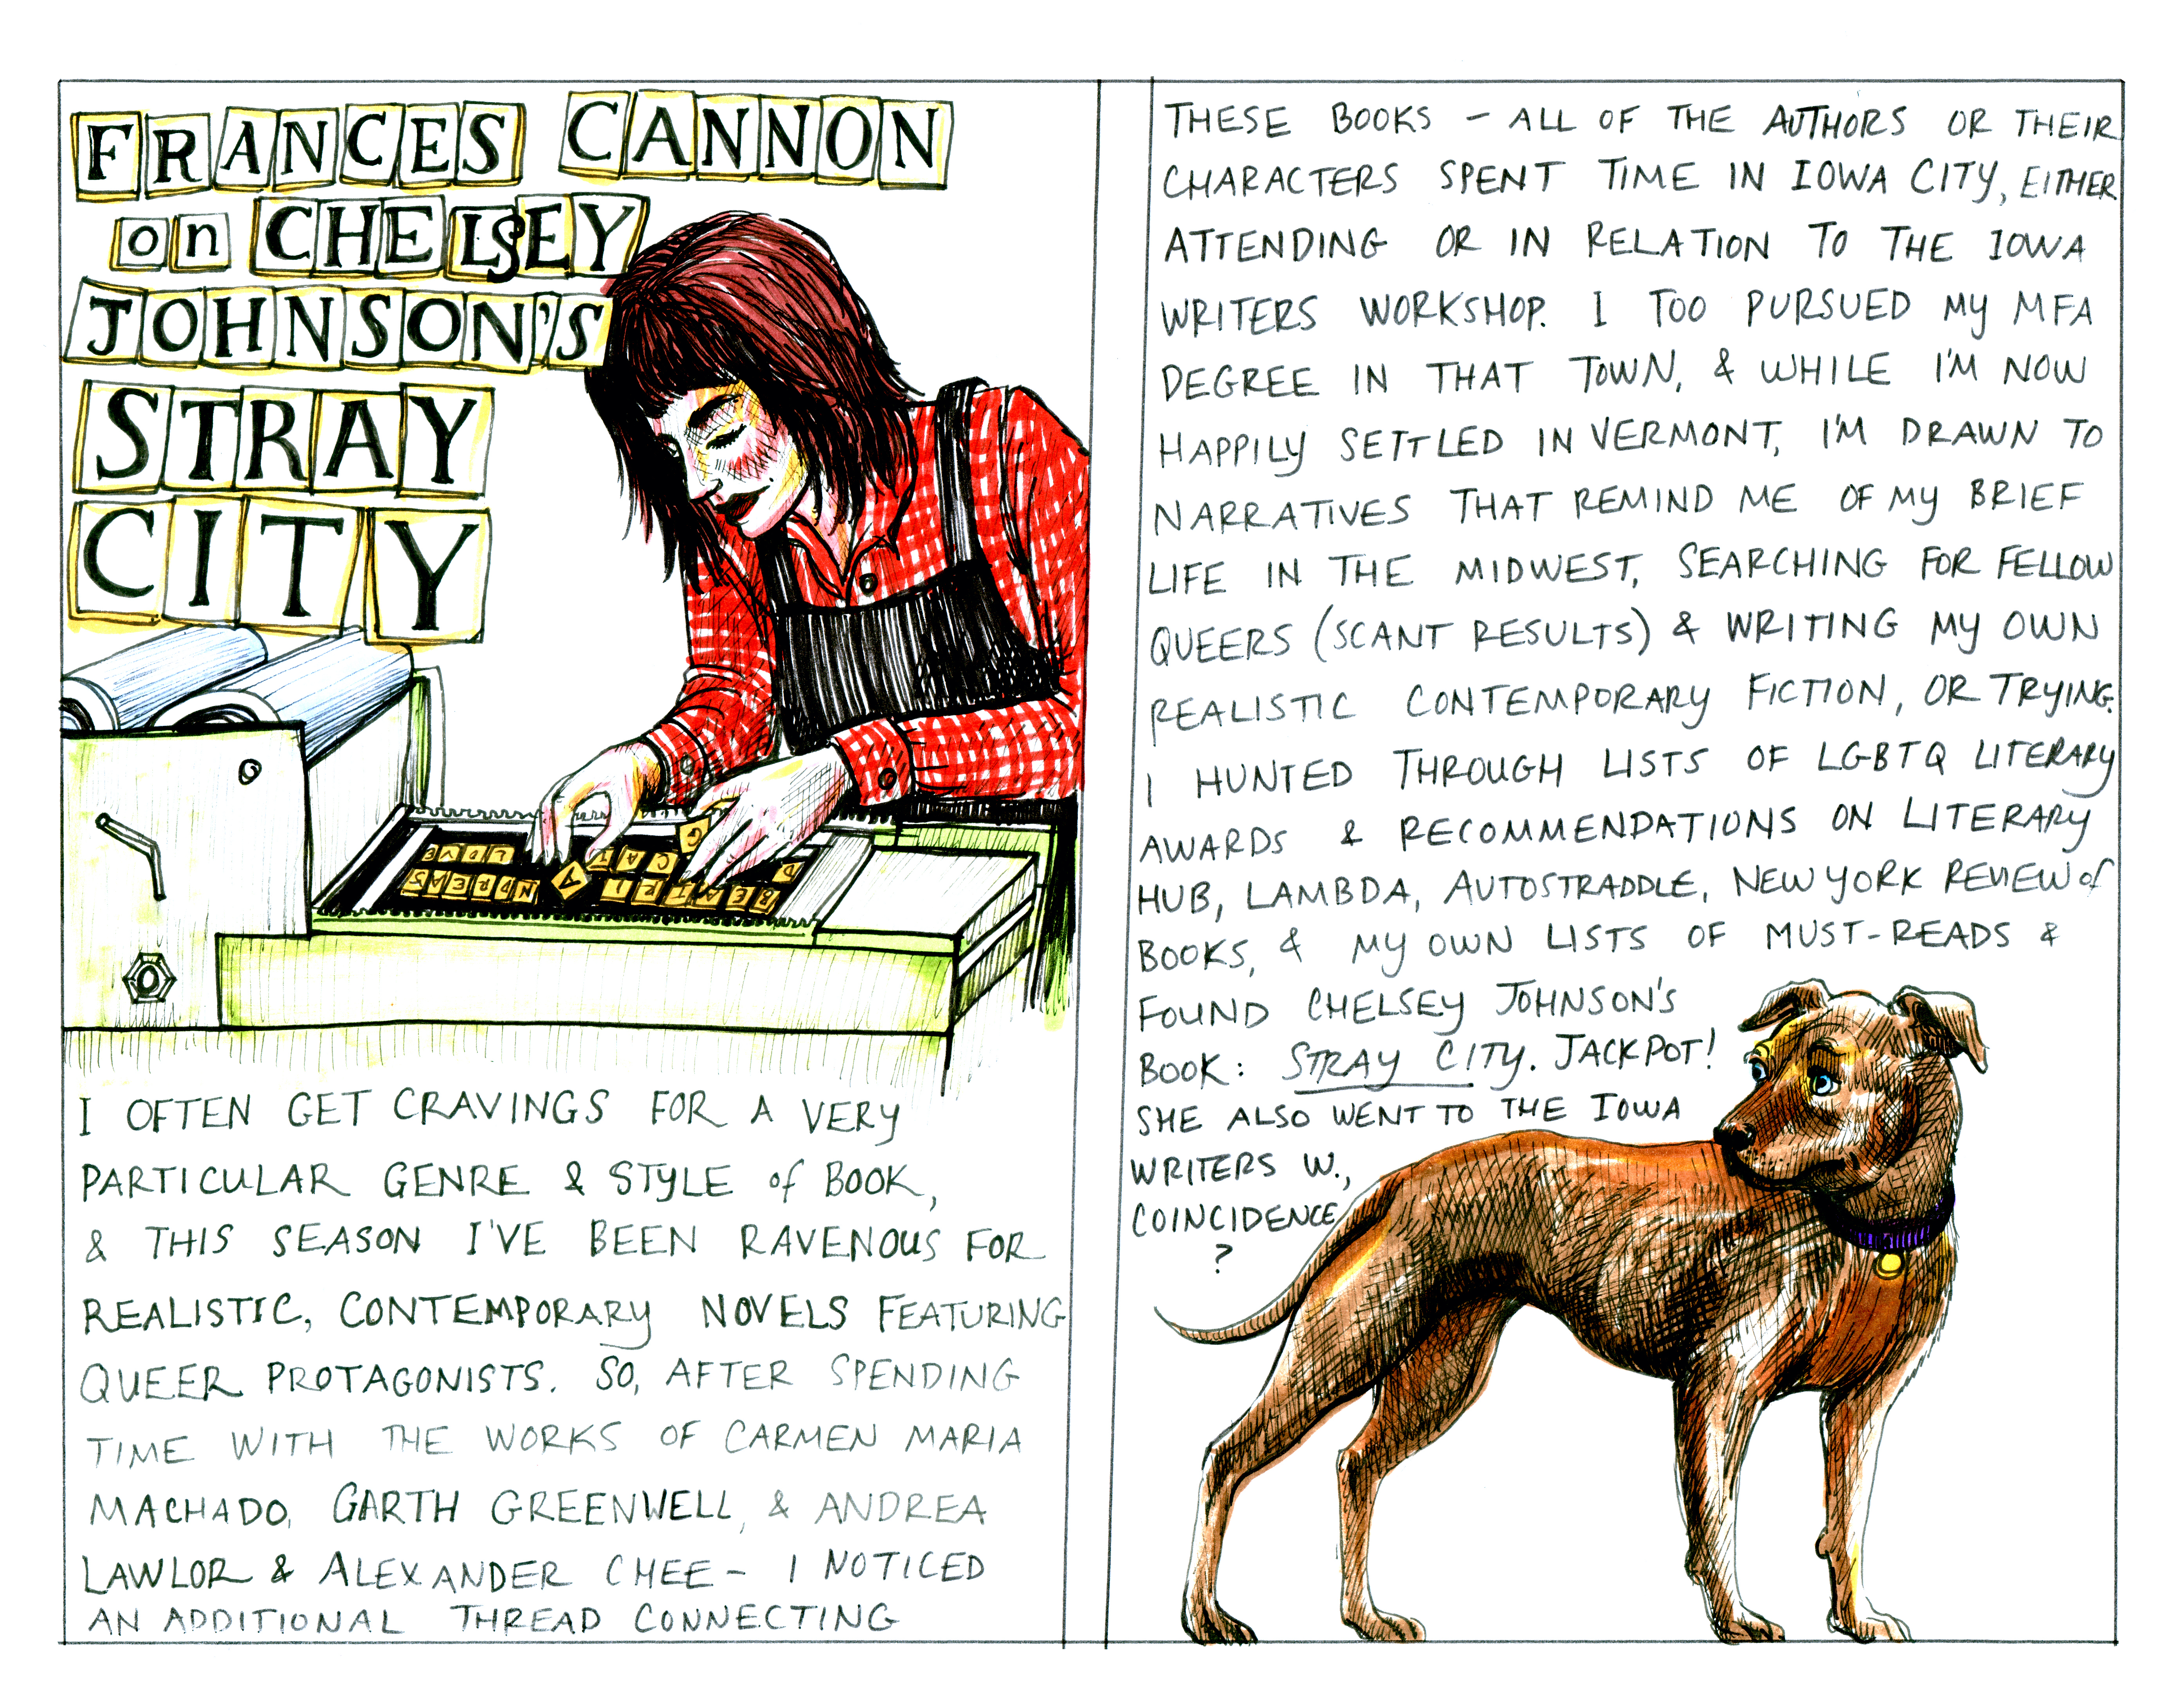 FRANCES CANNON
on CHELSEY
JOHNSON'S
STRAY
CITY
I OFTEN GET CRAVINGS FOR A VERY
PARTICULAR GENRE & STYLE of BOOK,
& THIS SEASON I'VE BEEN RAVENOUS FOR
REALISTIC, CONTEMPORARY NOVELS FEATURING
QUEER PROTAGONISTS. SO, AFTER SPENDING
TIME WITH THE WORKS OF CARMEN MARIA
MACHADO, GARTH GREENWELL, & ANDREA
LAWLOR & ALEXANDER CHEE – I NOTICED
AN ADDITIONAL THREAD CONNECTING
THESE BOOKS – ALL OF THE AUTHORS OR THEIR
CHARACTERS SPENT TIME IN IOWA CITY, EITHER
ATTENDING OR IN RELATION TO THE IOWA
WRITERS WORKSHOP. I TOO PURSUED MY MFA
DEGREE IN THAT TOWN, & WHILE I'M NOW
HAPPILY SETTLED IN VERMONT, I'M DRAWN TO
NARRATIVES THAT REMIND ME OF MY BRIEF
LIFE IN THE MIDWEST, SEARCHING FOR FELLOW
QUEERS (SCANT RESULTS) & WRITING MY OWN
REALISTIC CONTEMPORARY FICTION, OR TRYING.
I HUNTED THROUGH LISTS OF LGBTQ LITERARY
AWARDS & RECOMMENDATIONS ON LITERARY
HUB, LAMBDA, AUTOSTRADDLE, NEW YORK REVIEW of
BOOKS, & MY OWN LISTS OF MUST-READS &
FOUND CHELSEY JOHNSON'S
BOOK: STRAY CITY. JACKPOT!
SHE ALSO WENT TO THE IOWA
WRITERS W.,
COINCIDENCE
?